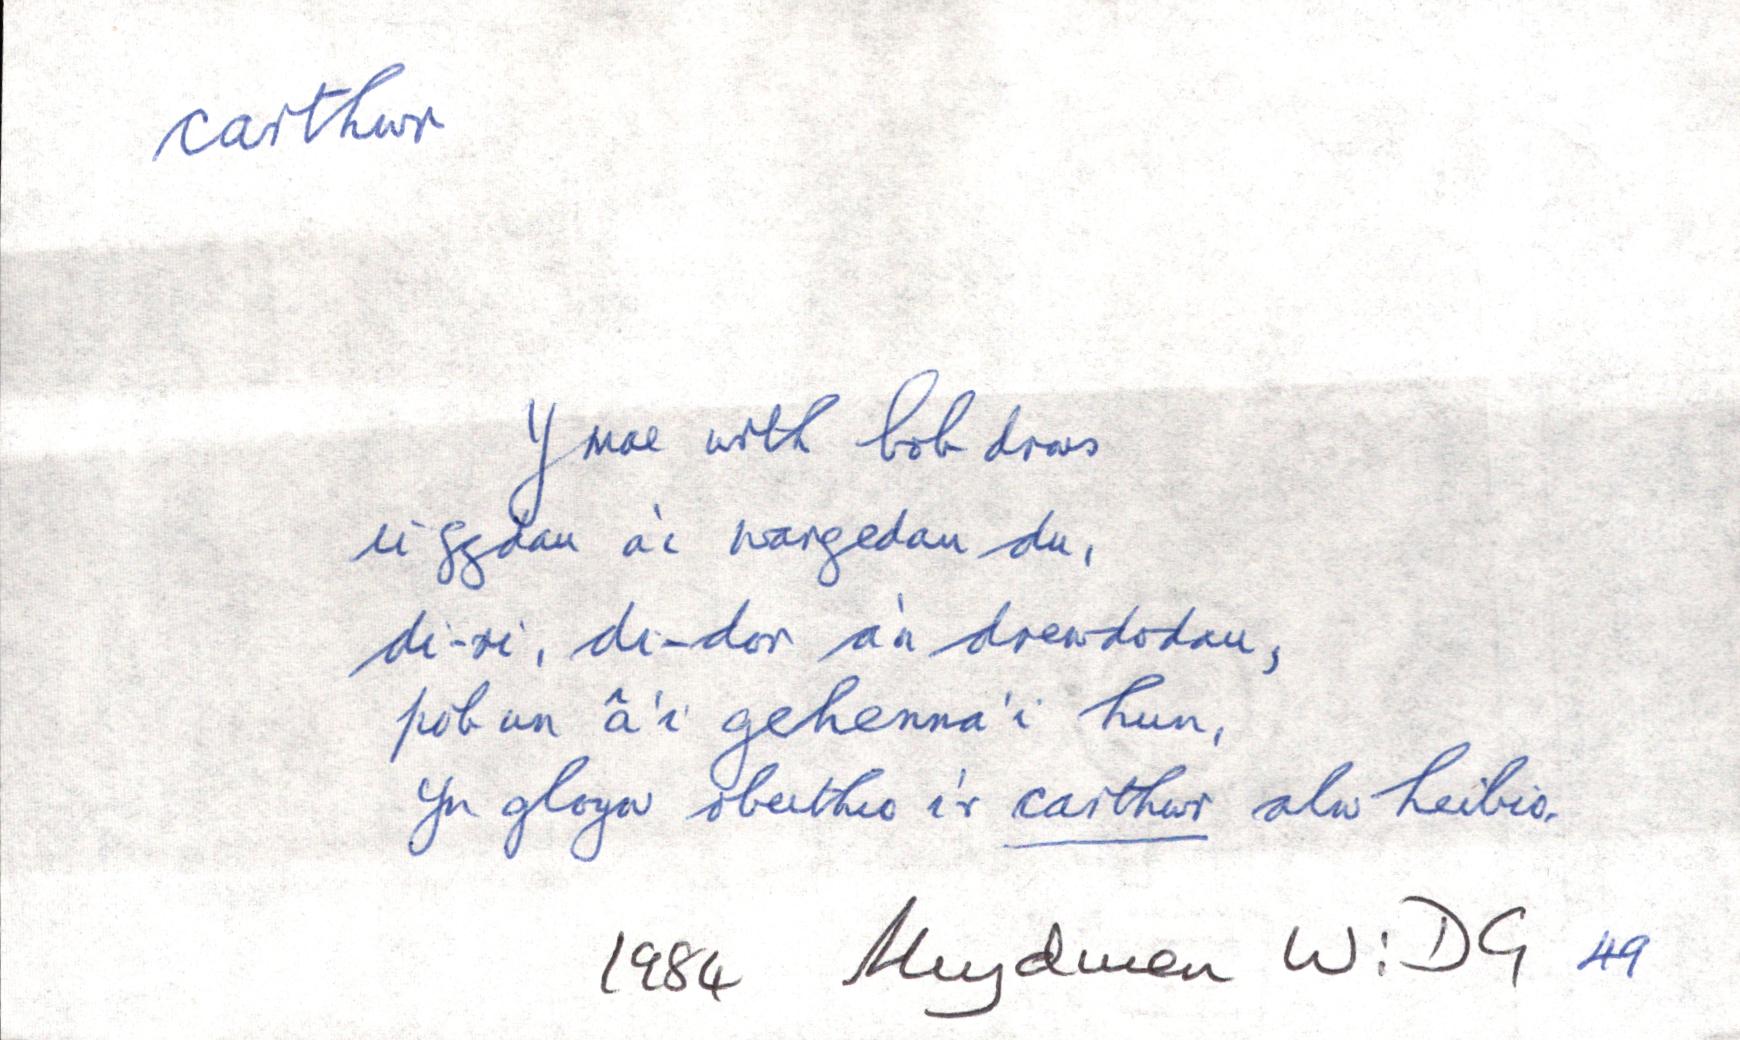 carthwr
Y mae wrth bob drws
a'i wargedau du,
di-ri, di-dor a'n drewdodau,
pob un â'i gehenna'i hun,
Yn gloyw obeithio i'r carthwr alw heibio.
1984 W: DG 49